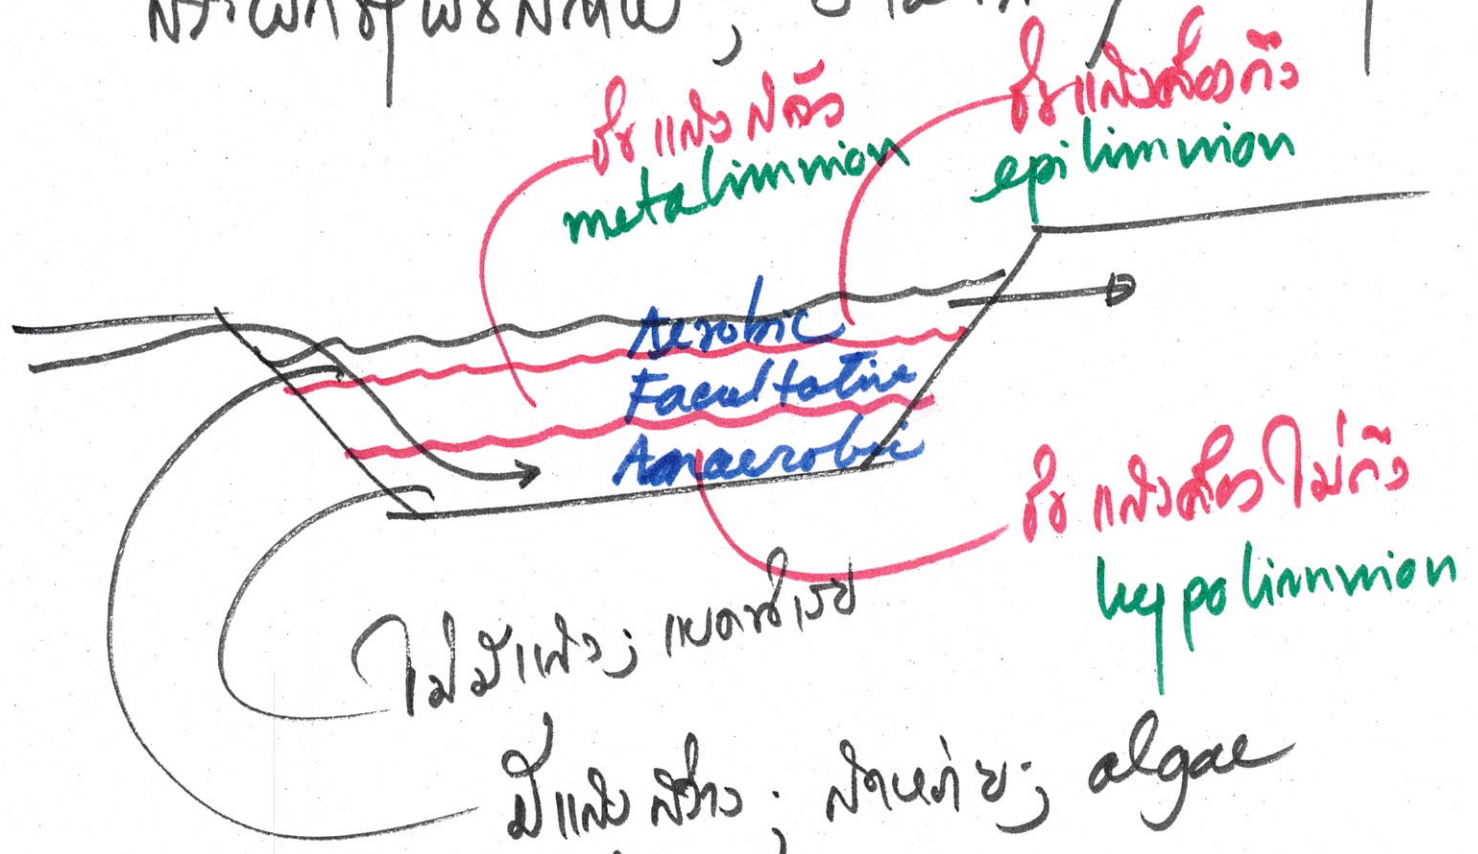 ชั้นแสงสลัว
metalimnion
ชั้นแสงส่องถึง
epilimnion
Aerobic
Facultative
Anaerobic
ชั้นแสงส่องไม่ถึง
hypolimnion
ไม่มีแสง; แบคทีเรีย
มีแสงสว่าง; สาหร่าย; algae